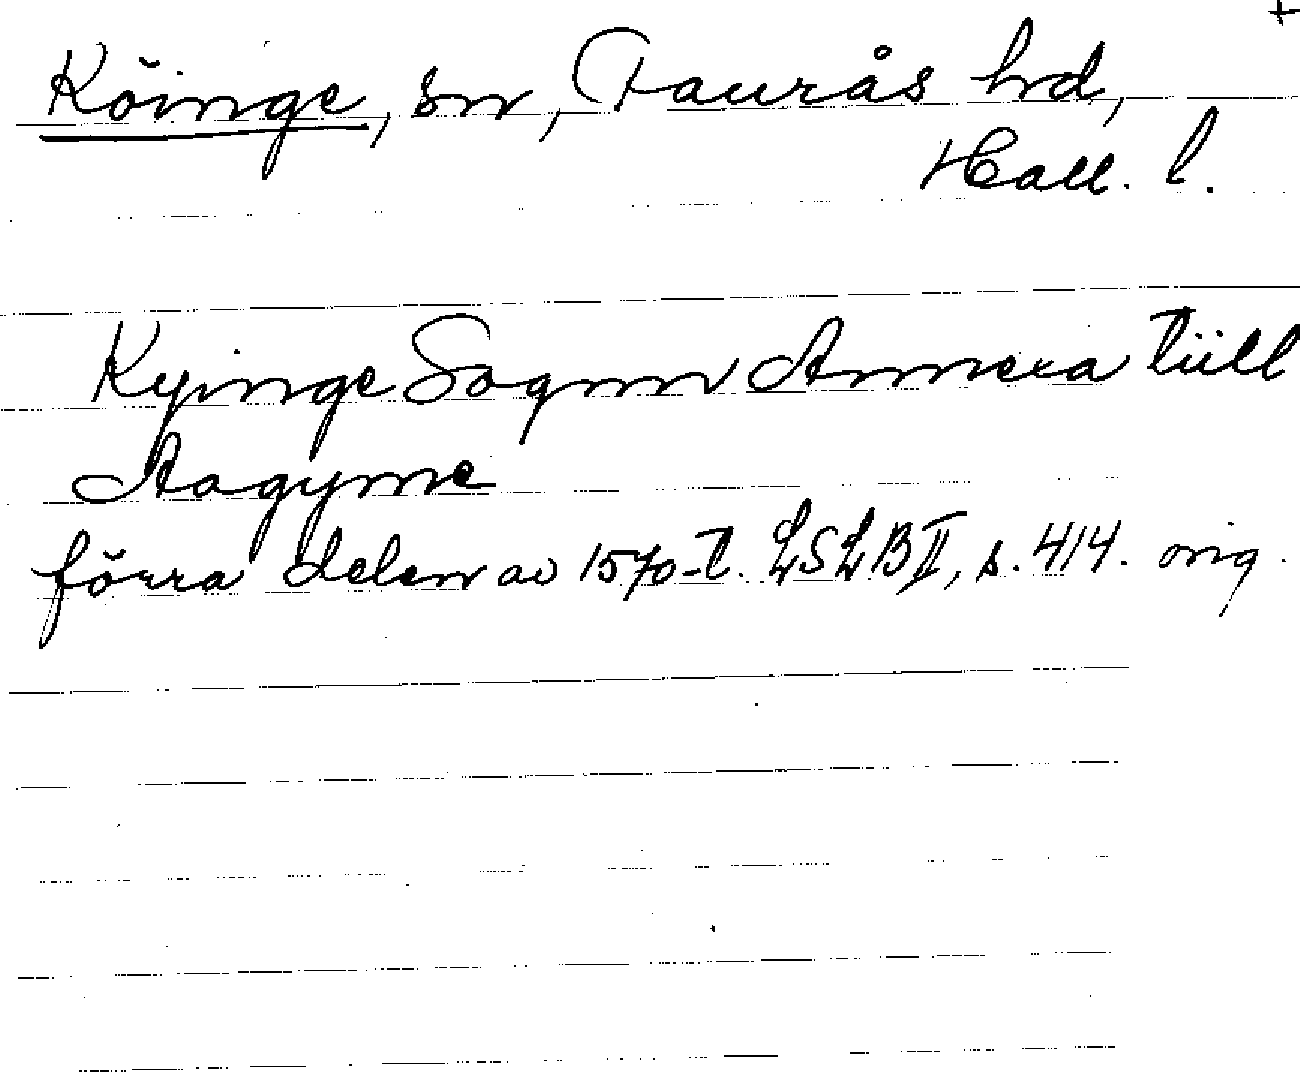 +
Köinge, sn, Faurås hrd,
Hall. l.
Kyinge Sognn Annexa tiill
Aagyme
förra delen av 1570-t. LSLB II, s. 414. orig.